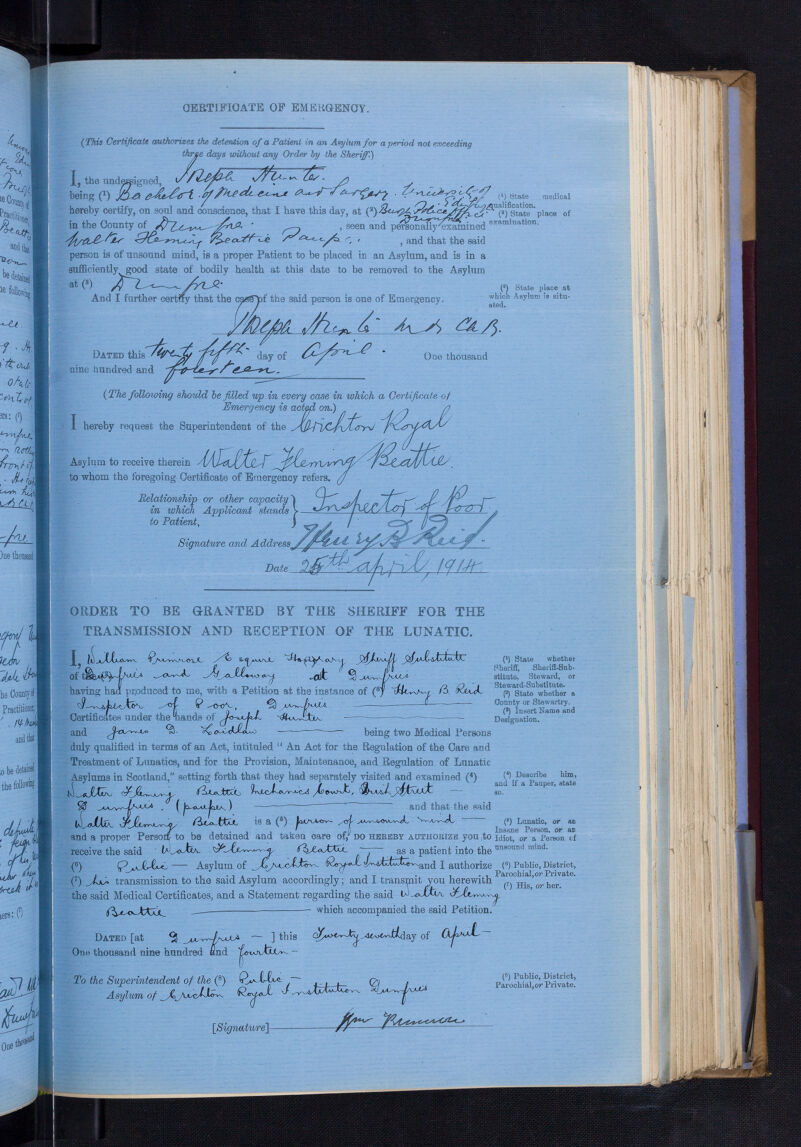 CERTIFICATE OF EMERGENCY.
(This Certificate authorizes the detention of a Patient in an Asylum for a period not exceeding
three days without any Order by the Sheriff.)
I, the undersigned, Joseph Hunter.
being (¹) Bachelor of Medicine and Surgery. University of Edinburgh
hereby certify, on soul and conscience, that I have this day, at (²) Burgh Police Office Dumfries
in the County of Dumfries. , seen and personally examined
Walter Fleming Beattie Pauper. , and that the said
person is of unsound mind, is a proper Patient to be placed in an Asylum, and is in a
sufficiently good state of bodily health at this date to be removed to the Asylum
at (³) Dumfries.
And I further certify that the case of the said person is one of Emergency.
Joseph Hunter M.B. Ch.B.
DATED this twenty fifth day of April. One thousand
nine hundred and fourteen.
(¹) State medical
qualification.
(²) State place of
examination.
(³) State place at
which Asylum is situ-
ated.
(The following should be filled up in every case in which a Certificate of
Emergency is acted on.)
I hereby request the Superintendent of the Crichton Royal
Asylum to receive therein Walter Fleming Beattie.
to whom the foregoing Certificate of Emergency refers.
Relationship or other capacity
in which Applicant stands
to Patient,
Inspector of Poor
Signature and Address Henry B Reid.
Date 25th April, 1914
ORDER TO BE GRANTED BY THE SHERIFF FOR THE
TRANSMISSION AND RECEPTION OF THE LUNATIC.
I, William Primrose Esquire Honorary Sheriff Substitute
of Dumfries and Galloway at Dumfries
having had produced to me, with a Petition at the instance of (³) Henry B Reid
Inspector of Poor, Dumfries
Certificates under the hands of Joseph Hunter
and James D. Laidlaw being two Medical Persons
duly qualified in terms of an Act, intituled "An Act for the Regulation of the Care and
Treatment of Lunatics, and for the Provision, Maintenance, and Regulation of Lunatic
Asylums in Scotland," setting forth that they had separately visited and examined (⁴)
Walter Fleming Beattie Mechanics Court, Irish Street
Dumfries. (pauper) and that the said
Walter Fleming Beattie is a (⁵) person of unsound mind
and a proper Person to be detained and taken care of, DO HEREBY AUTHORIZE you to
receive the said Walter Fleming Beattie as a patient into the
(⁶) Public Asylum of Crichton Royal Institution and I authorize
(⁷) his transmission to the said Asylum accordingly; and I transmit you herewith
the said Medical Certificates, and a Statement regarding the said Walter Fleming
Beattie which accompanied the said Petition.
DATED [at Dumfries ] this Twenty seventh day of April
One thousand nine hundred and fourteen
To the Superintendent of the (⁶) Public
Asylum of Crichton Royal Institution Dumfries
[Signature] Wm Primrose
(¹) State whether
Sheriff, Sheriff-Sub-
stitute, Steward, or
Steward-Substitute.
(²) State whether a
County or Stewartry.
(³) Insert Name and
Designation.
(⁴) Describe him,
and if a Pauper, state
so.
(⁵) Lunatic, or an
Insane Person, or an
Idiot, or a Person of
unsound mind.
(⁶) Public, District,
Parochial, or Private.
(⁷) His, or her.
(⁶) Public, District,
Parochial, or Private.